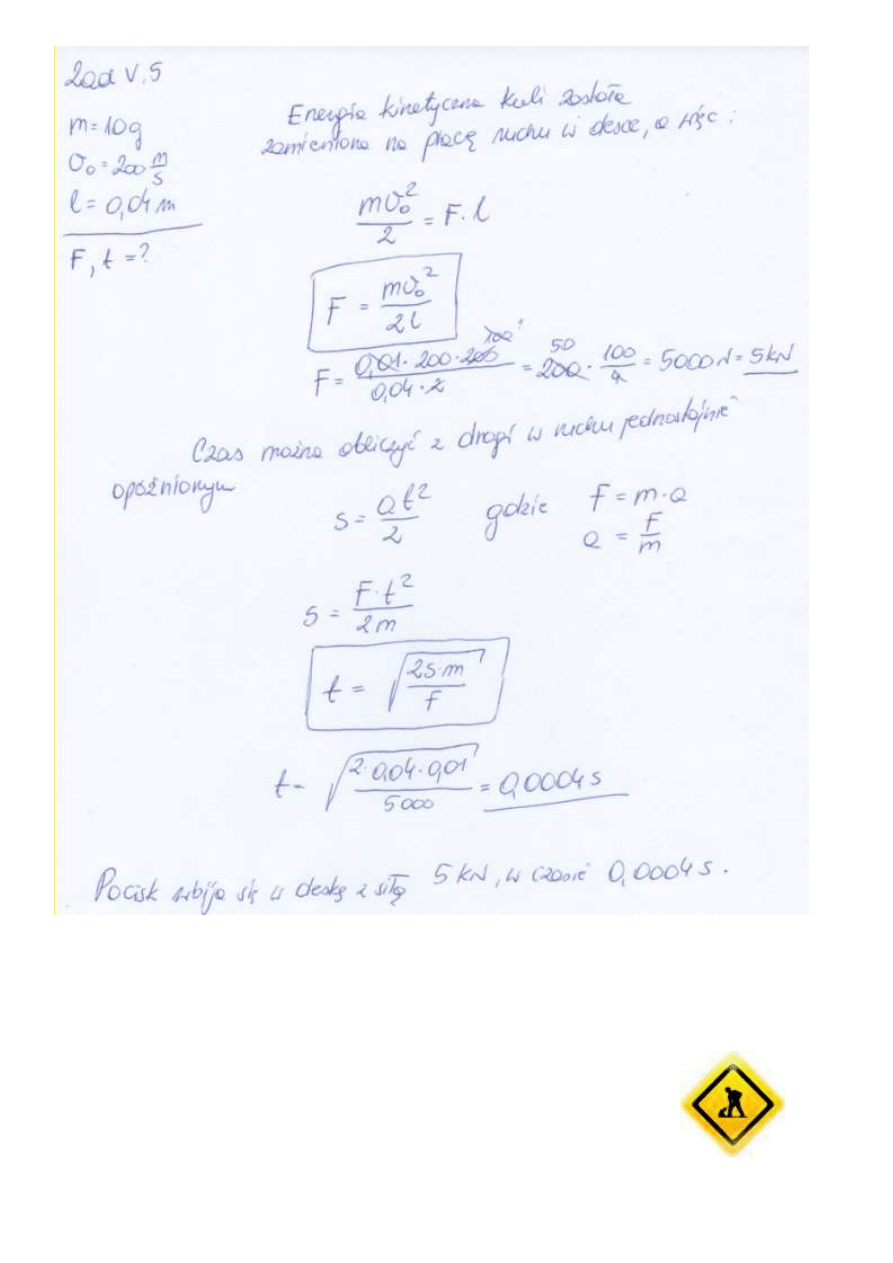 Zad V.5
m = 10g
v₀ = 200 m/s
l = 0,04 m
F, t = ?
Energia kinetyczna kuli została
zamieniona na pracę ruchu w desce, a więc :
mv₀²/2 = F · l
F = mv₀²/2l
F = 0,01 · 200 · 200 100 1 / 0,04 · 2 = 50 200 · 100/4 = 5000 N = 5kN
Czas można obliczyć z drogi w ruchu jednostajnie
opóźnionym
s = at²/2 gdzie F = m · a
a = F/m
s = F · t²/2m
t = √(2s·m/F)
t = √(2 · 0,04 · 0,01/5000) = 0,0004 s
Pocisk wbija się w deskę z siłą 5 kN, w czasie 0,0004 s.